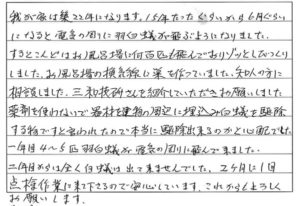 我が家は築22年になります。15年たったぐらいから6月ぐらい
になると電気の周りに羽白蟻が飛ぶようになりました。
するとこんどはお風呂場に何百匹も飛んでおりゾッとしびっくり
しました。お風呂場の換気線に巣を作っていました。知人の方に
相談しました。三和技研さんを紹介していただきお願いしました。
薬剤を使わないで器材を建物の周辺に埋込み白蟻を駆除
する物ですと言われたので本当に駆除出来るのか心配でした。
一年目4〜5匹羽白蟻が電気の周りに飛んでました。
二年目からは全く白蟻は出て来ませんでした。2ヶ月に1回
点検作業に来て下さるので安心しています。これからもよろしく
お願いします。